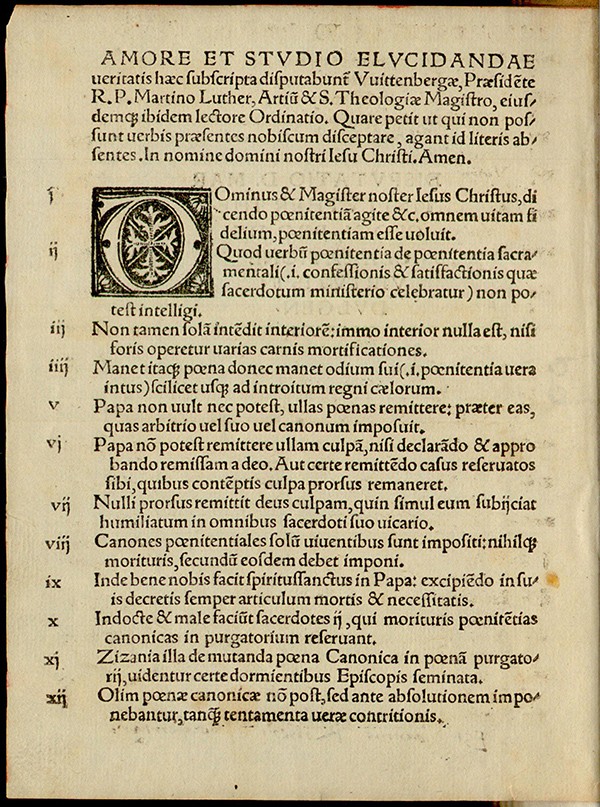 AMORE ET STVDIO ELVCIDANDAE
ueritatis hæc subscripta disputabunt̃ Vuittenbergæ, Præsidẽte
R. P. Martino Luther, Artiũ & S. Theologiæ Magistro, eius⸗
demq̃ ibidem lectore Ordinatio. Quare petit ut qui non pos⸗
sunt uerbis præsentes nobiscum disceptare, agant id literis ab⸗
sentes. In nomine domini nostri Iesu Christi. Amen.
j DOminus & Magister noster Iesus Christus, di
cendo pœnitentiã agite &c. omnem uitam fi
delium, pœnitentiam esse uoluit.
ij Quod uerbũ pœnitentia de pœnitentia sacra⸗
mentali (.i. confessionis & satisfactionis quæ
sacerdotum ministerio celebratur) non po⸗
test intelligi.
iij Non tamen solã intẽdit interiorẽ: immo interior nulla est, nisi
foris operetur uarias carnis mortificationes.
iiij Manet itaq̃ pœna donec manet odium sui (.i. pœnitentia uera
intus) scilicet usq̃ ad introitum regni cælorum.
v Papa non uult nec potest, ullas pœnas remittere: præter eas,
quas arbitrio uel suo uel canonum imposuit.
vj Papa nõ potest remittere ullam culpã, nisi declarãdo & appro
bando remissam a deo. Aut certe remittẽdo casus reseruatos
sibi, quibus contẽptis culpa prorsus remaneret.
vij Nulli prorsus remittit deus culpam, quin simul eum subijciat
humiliatum in omnibus sacerdoti suo uicario.
viij Canones pœnitentiales solũ uiuentibus sunt impositi: nihilq̃
morituris, secundũ eosdem debet imponi.
ix Inde bene nobis facit spiritussanctus in Papa: excipiẽdo in su⸗
is decretis semper articulum mortis & necessitatis.
x Indocte & male faciũt sacerdotes ij, qui morituris pœnitẽtias
canonicas in purgatorium reseruant.
xj Zizania illa de mutanda pœna Canonica in pœnã purgato⸗
rij, uidentur certe dormientibus Episcopis seminata.
xij Olim pœnæ canonicæ nõ post, sed ante absolutionem impo⸗
nebantur, tanq̃ tentamenta ueræ contritionis.